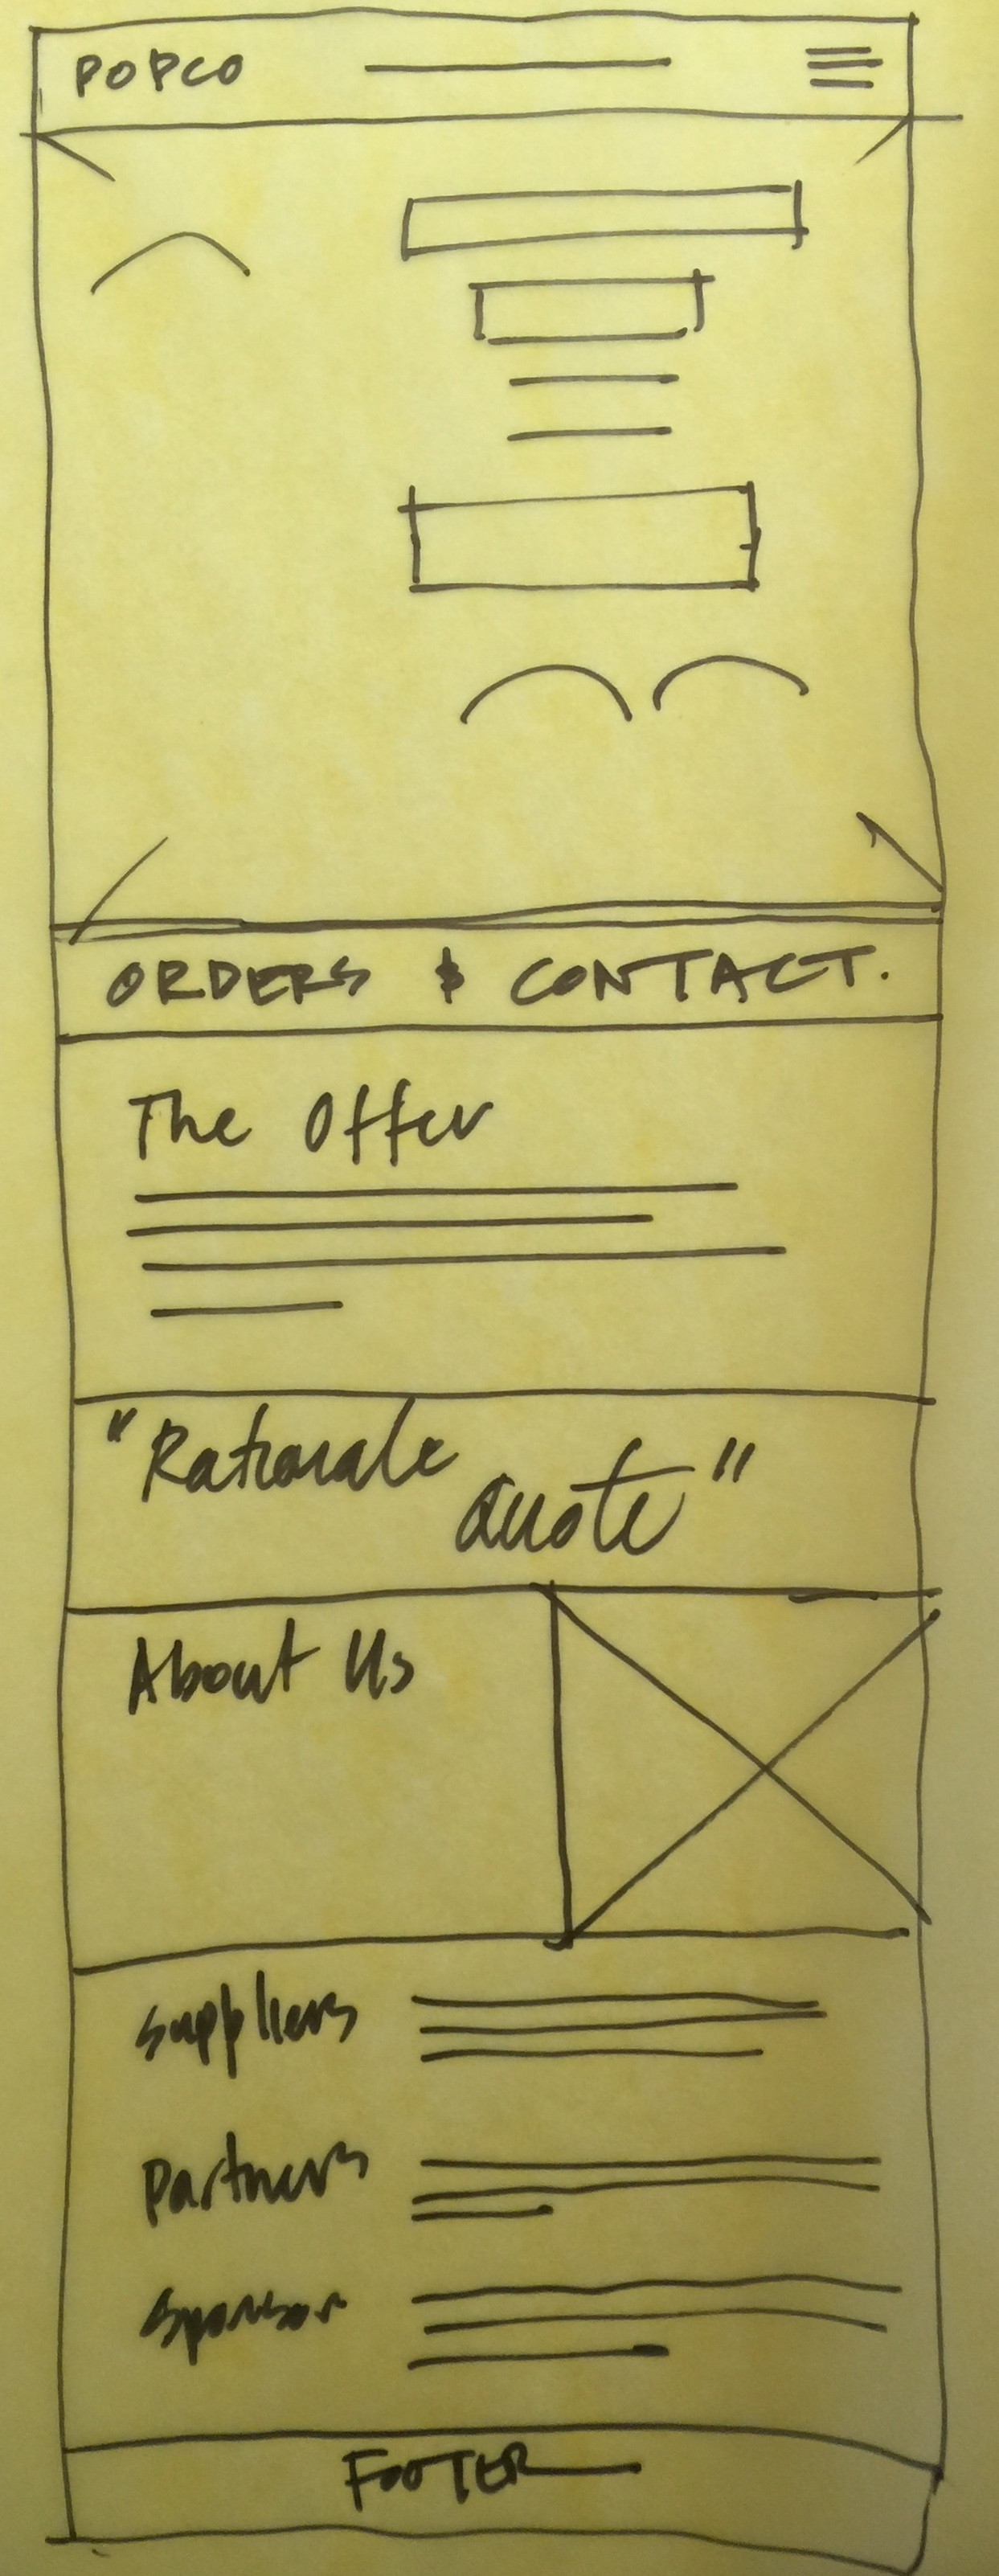 POPCO
ORDERS & CONTACT.
The Offer
"Rationale
Quote"
About Us
Suppliers
Partners
Sponsor
FOOTER